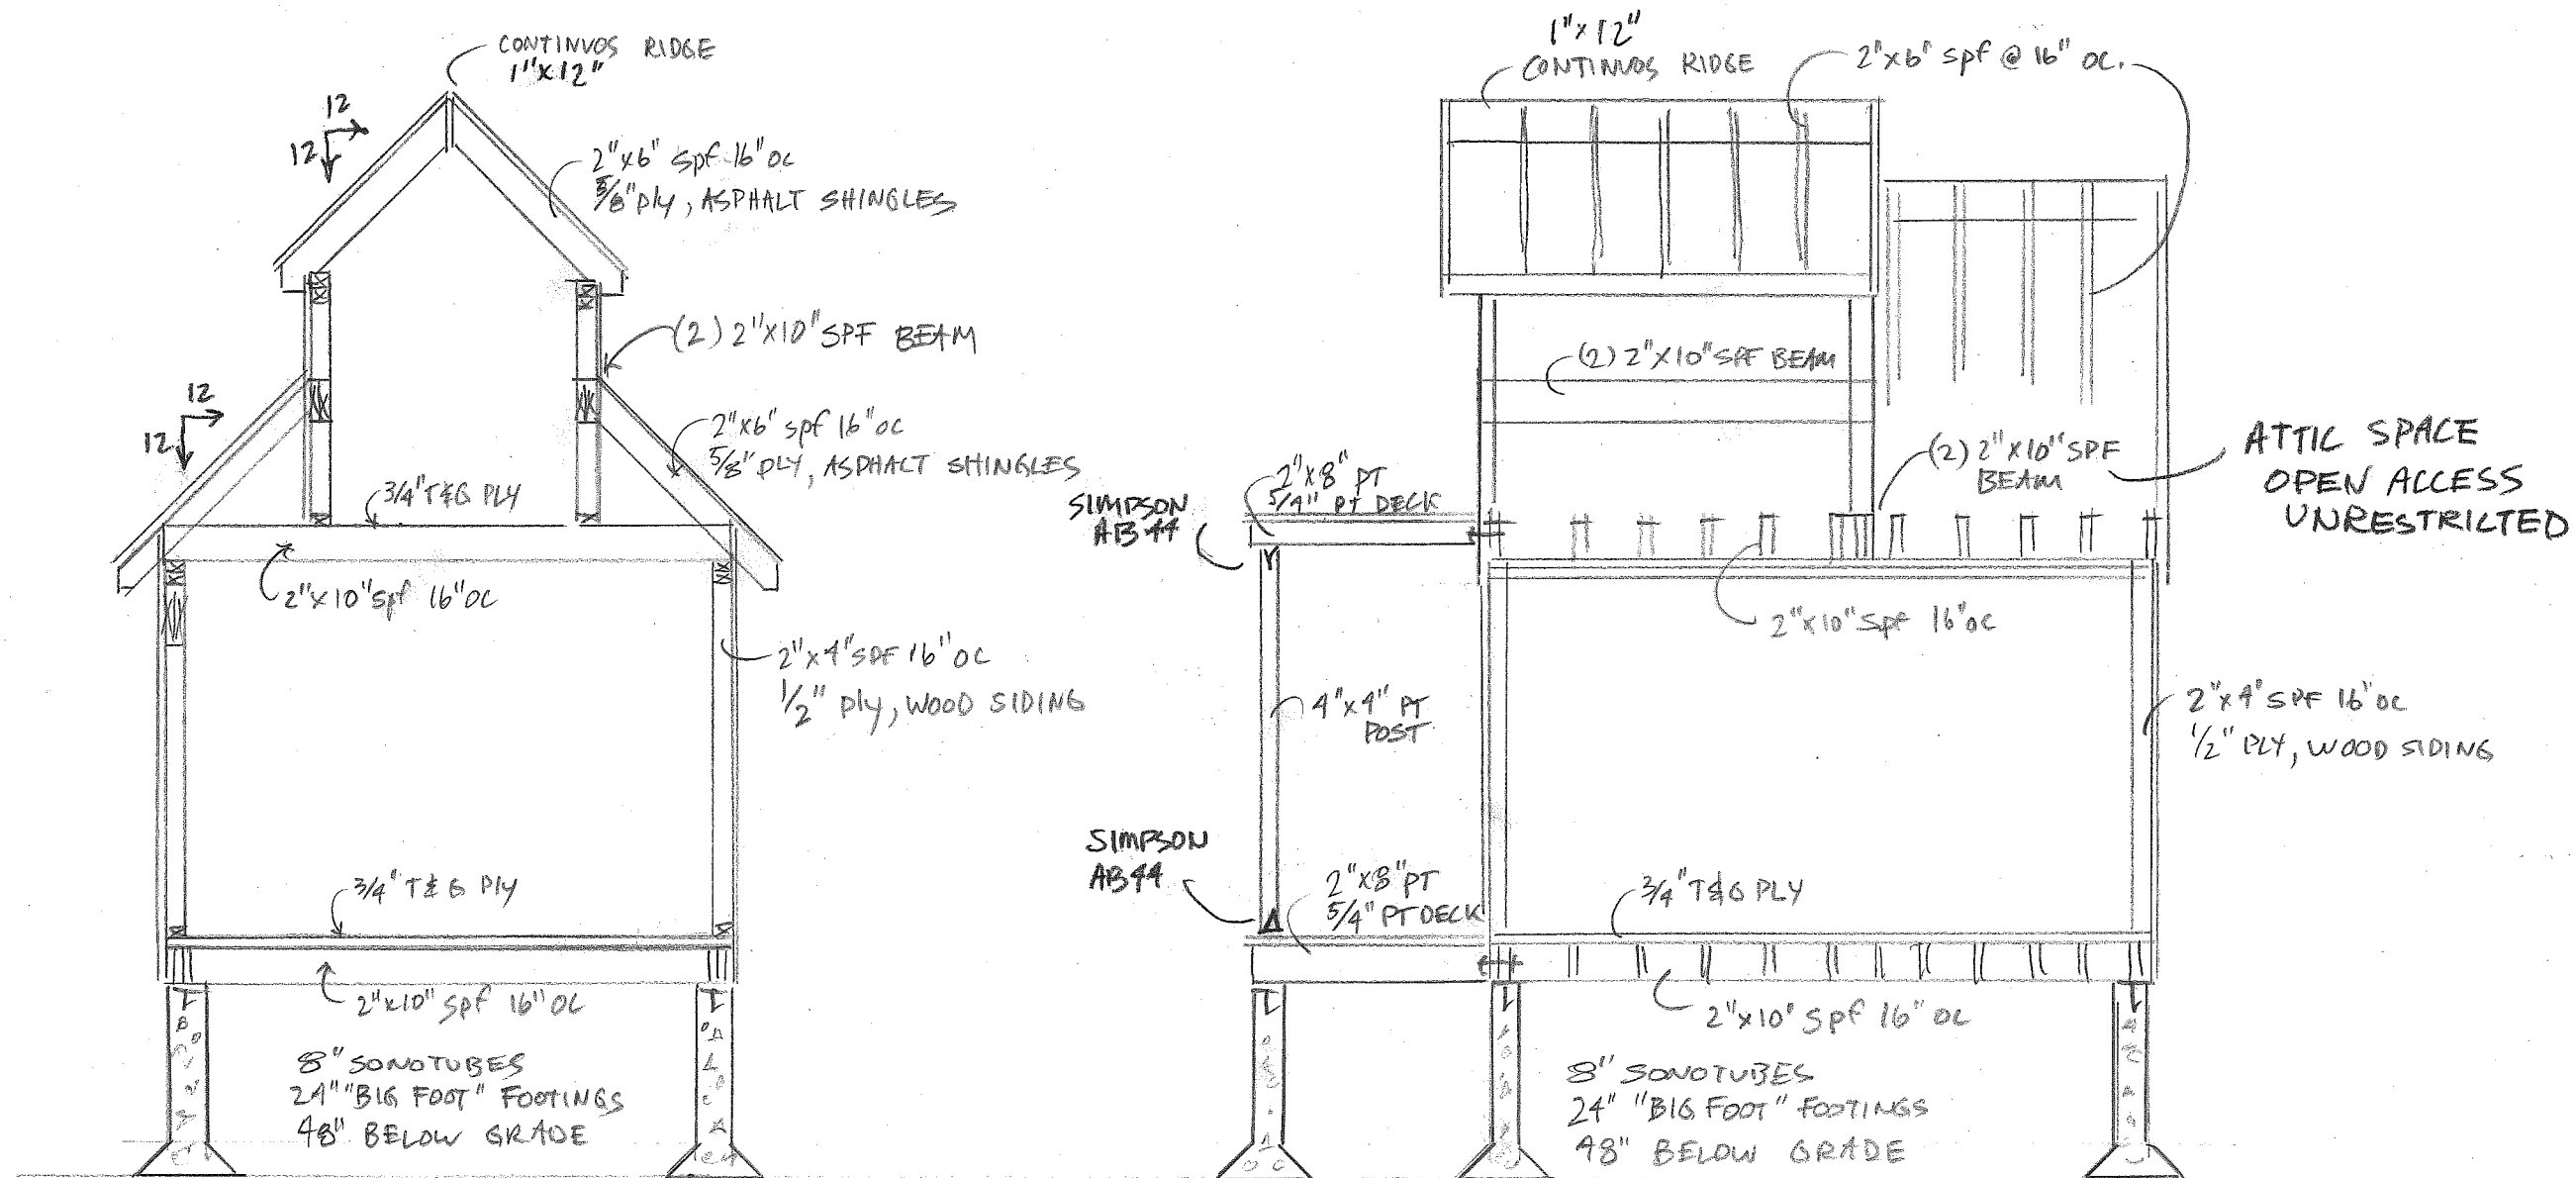 CONTINUOS RIDGE
1"x12"
12
12
2"x6" spf 16" oc
5/8" ply, ASPHALT SHINGLES
(2) 2"x10" SPF BEAM
12
12
2"x6" spf 16" oc
5/8" PLY, ASPHALT SHINGLES
3/4" T&G PLY
2"x10" spf 16" OC
2"x4" SPF 16" OC
1/2" ply, WOOD SIDING
3/4" T&G Ply
2"x10" spf 16" OC
8" SONOTUBES
24" "BIG FOOT" FOOTINGS
48" BELOW GRADE
1"x12"
CONTINUOS RIDGE
2"x6" spf @ 16" OC.
(2) 2"x10" SPF BEAM
(2) 2"x10" SPF
BEAM
ATTIC SPACE
OPEN ACCESS
UNRESTRICTED
2"x8" PT
5/4" PT DECK
SIMPSON
AB44
2"x10" spf 16" oc
4"x4" PT
POST
2"x4" SPF 16" oc
1/2" PLY, WOOD SIDING
SIMPSON
AB44
2"x8" PT
5/4" PT DECK
3/4" T&G PLY
2"x10" spf 16" OC
8" SONOTUBES
24" "BIG FOOT" FOOTINGS
48" BELOW GRADE